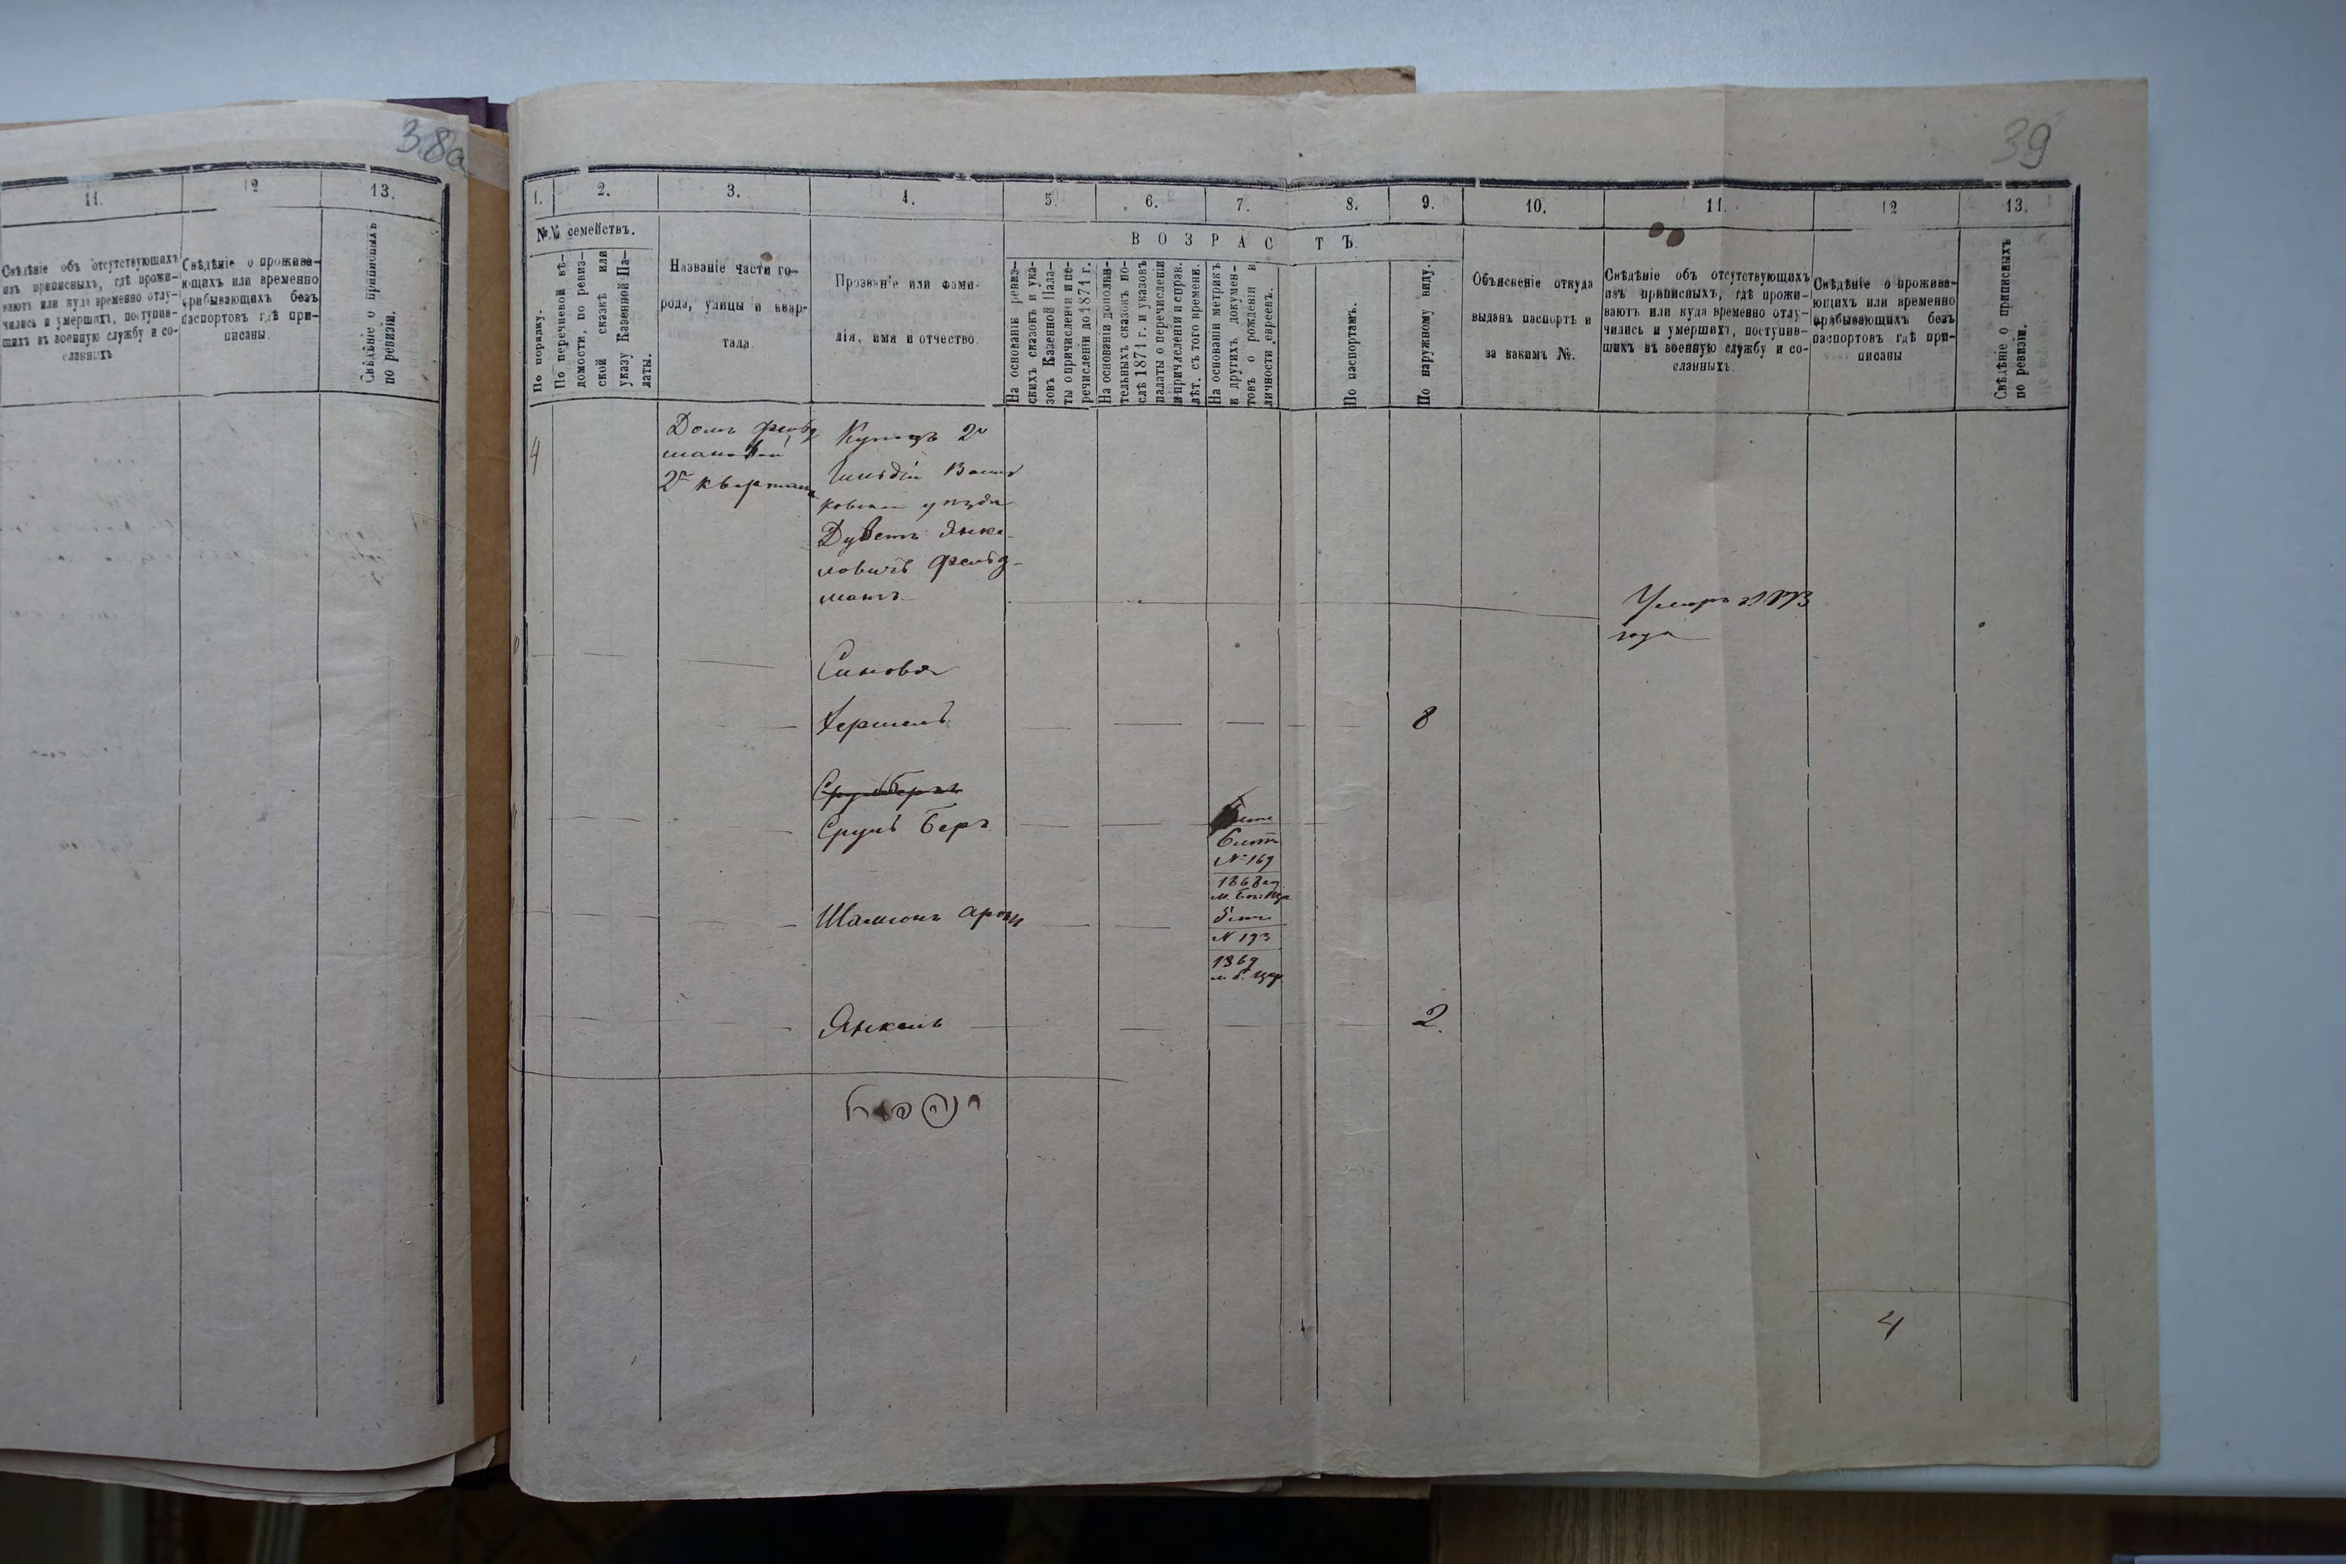 38а
11.
12
13.
Свѣдѣніе объ отсутствующихъ
изъ приписныхъ, гдѣ прожи-
ваютъ или куда временно отлу-
чились и умершихъ, поступив-
шихъ въ военную службу и со-
сланныхъ
Свѣдѣніе о прожива-
ющихъ или временно
прибывающихъ безъ
паспортовъ гдѣ при-
писаны.
Свѣдѣніе о приписныхъ
по ревизіи.
39
1.
2.
3.
4.
5.
6.
7.
8.
9.
10.
11.
12
13.
№№ семействъ.
По порядку.
По перечневой вѣ-
домости, по ревиз-
ской сказкѣ или
указу Казенной Па-
латы.
Названіе части го-
рода, улицы и квар-
тала.
Прозваніе или фами-
лія, имя и отчество.
ВОЗРАСТЪ.
На основаніи ревиз-
скихъ сказокъ и ука-
зовъ Казенной Пала-
ты о причисленіи и пе-
речисленіи до 1871 г.
На основаніи дополни-
тельныхъ сказокъ по-
слѣ 1871 г. и указовъ
палаты о перечисленіи
и причисленіи и справ.
лѣт. съ того времени.
На основаніи метрикъ
и другихъ докумен-
товъ о рожденіи и
личности евреевъ.
По паспортамъ.
По наружному виду.
Объясненіе откуда
выданъ паспортъ и
за какимъ №.
Свѣдѣніе объ отсутствующихъ
изъ приписныхъ, гдѣ прожи-
ваютъ или куда временно отлу-
чились и умершихъ, поступив-
шихъ въ военную службу и со-
сланныхъ.
Свѣдѣніе о прожива-
ющихъ или временно
прибывающихъ безъ
паспортовъ гдѣ при-
писаны
Свѣдѣніе о приписныхъ
по ревизіи.
4
Домъ Фельд
мановой
2го квартала
Купецъ 2й
Гильдіи Василь
ковскаго уѣзда
Дуветъ Янке-
ловичъ Фельд-
манъ
Умеръ въ 1873
года
Сыновья
Гершель
8
Срулъберъ
Сруль Беръ
6 лѣтъ
№ 169
1868 г.
Шамсонъ Арон
5 лѣтъ
№ 193
1869
м. Б. Цер.
Янкель
2.
4